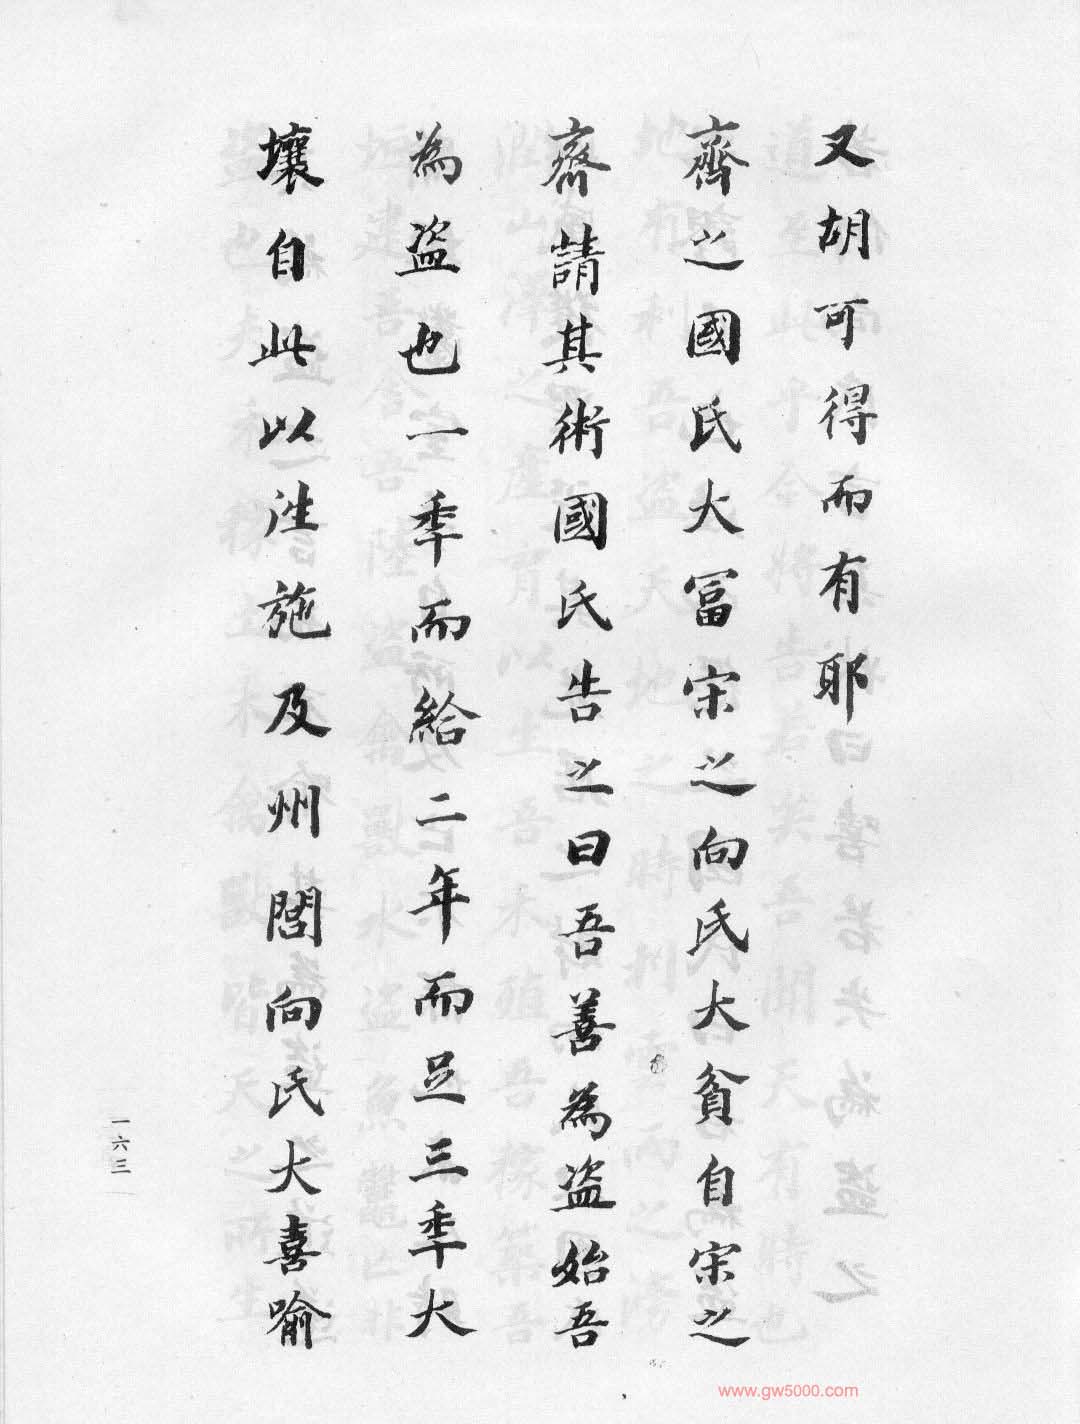 又胡可得而有耶
齊之國氏大冨宋之向氏大貧自宋之
齊請其術國氏告之曰吾善為盗始吾
為盗也一秊而給二年而足三秊大
壤自此以往施及州閭向氏大喜喻
一六三
www.gw5000.com